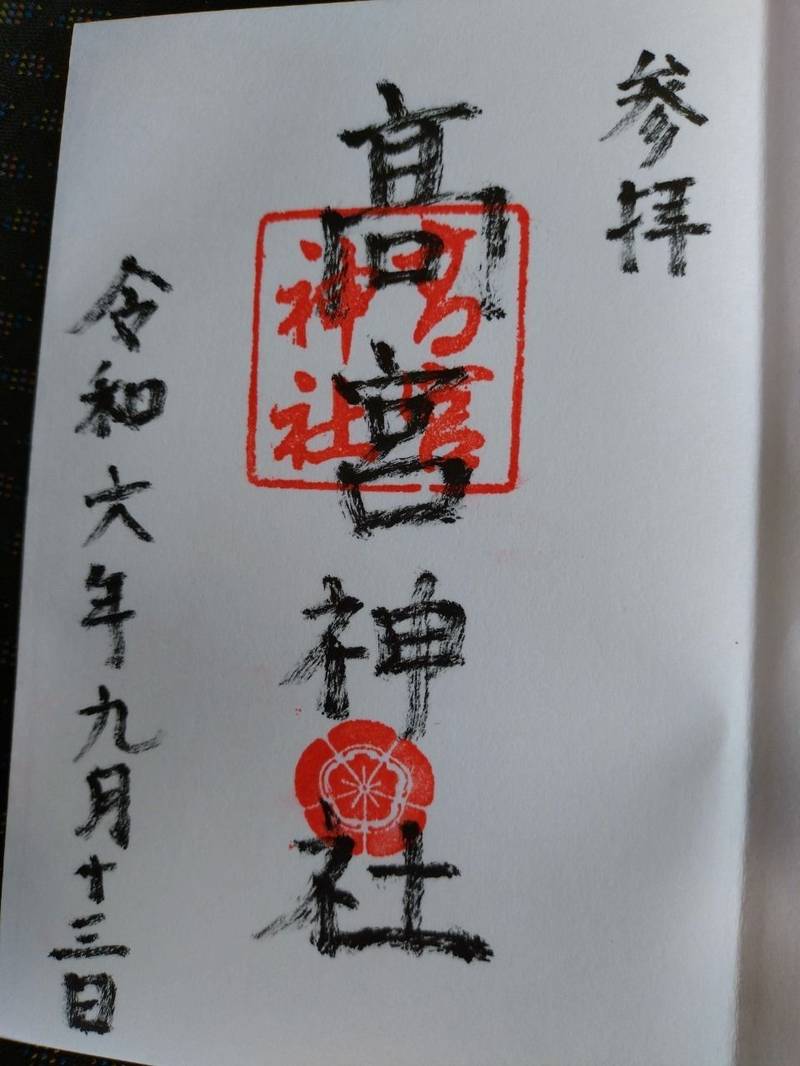 参拝
高宮神社
高宮
神社
令和六年九月十三日